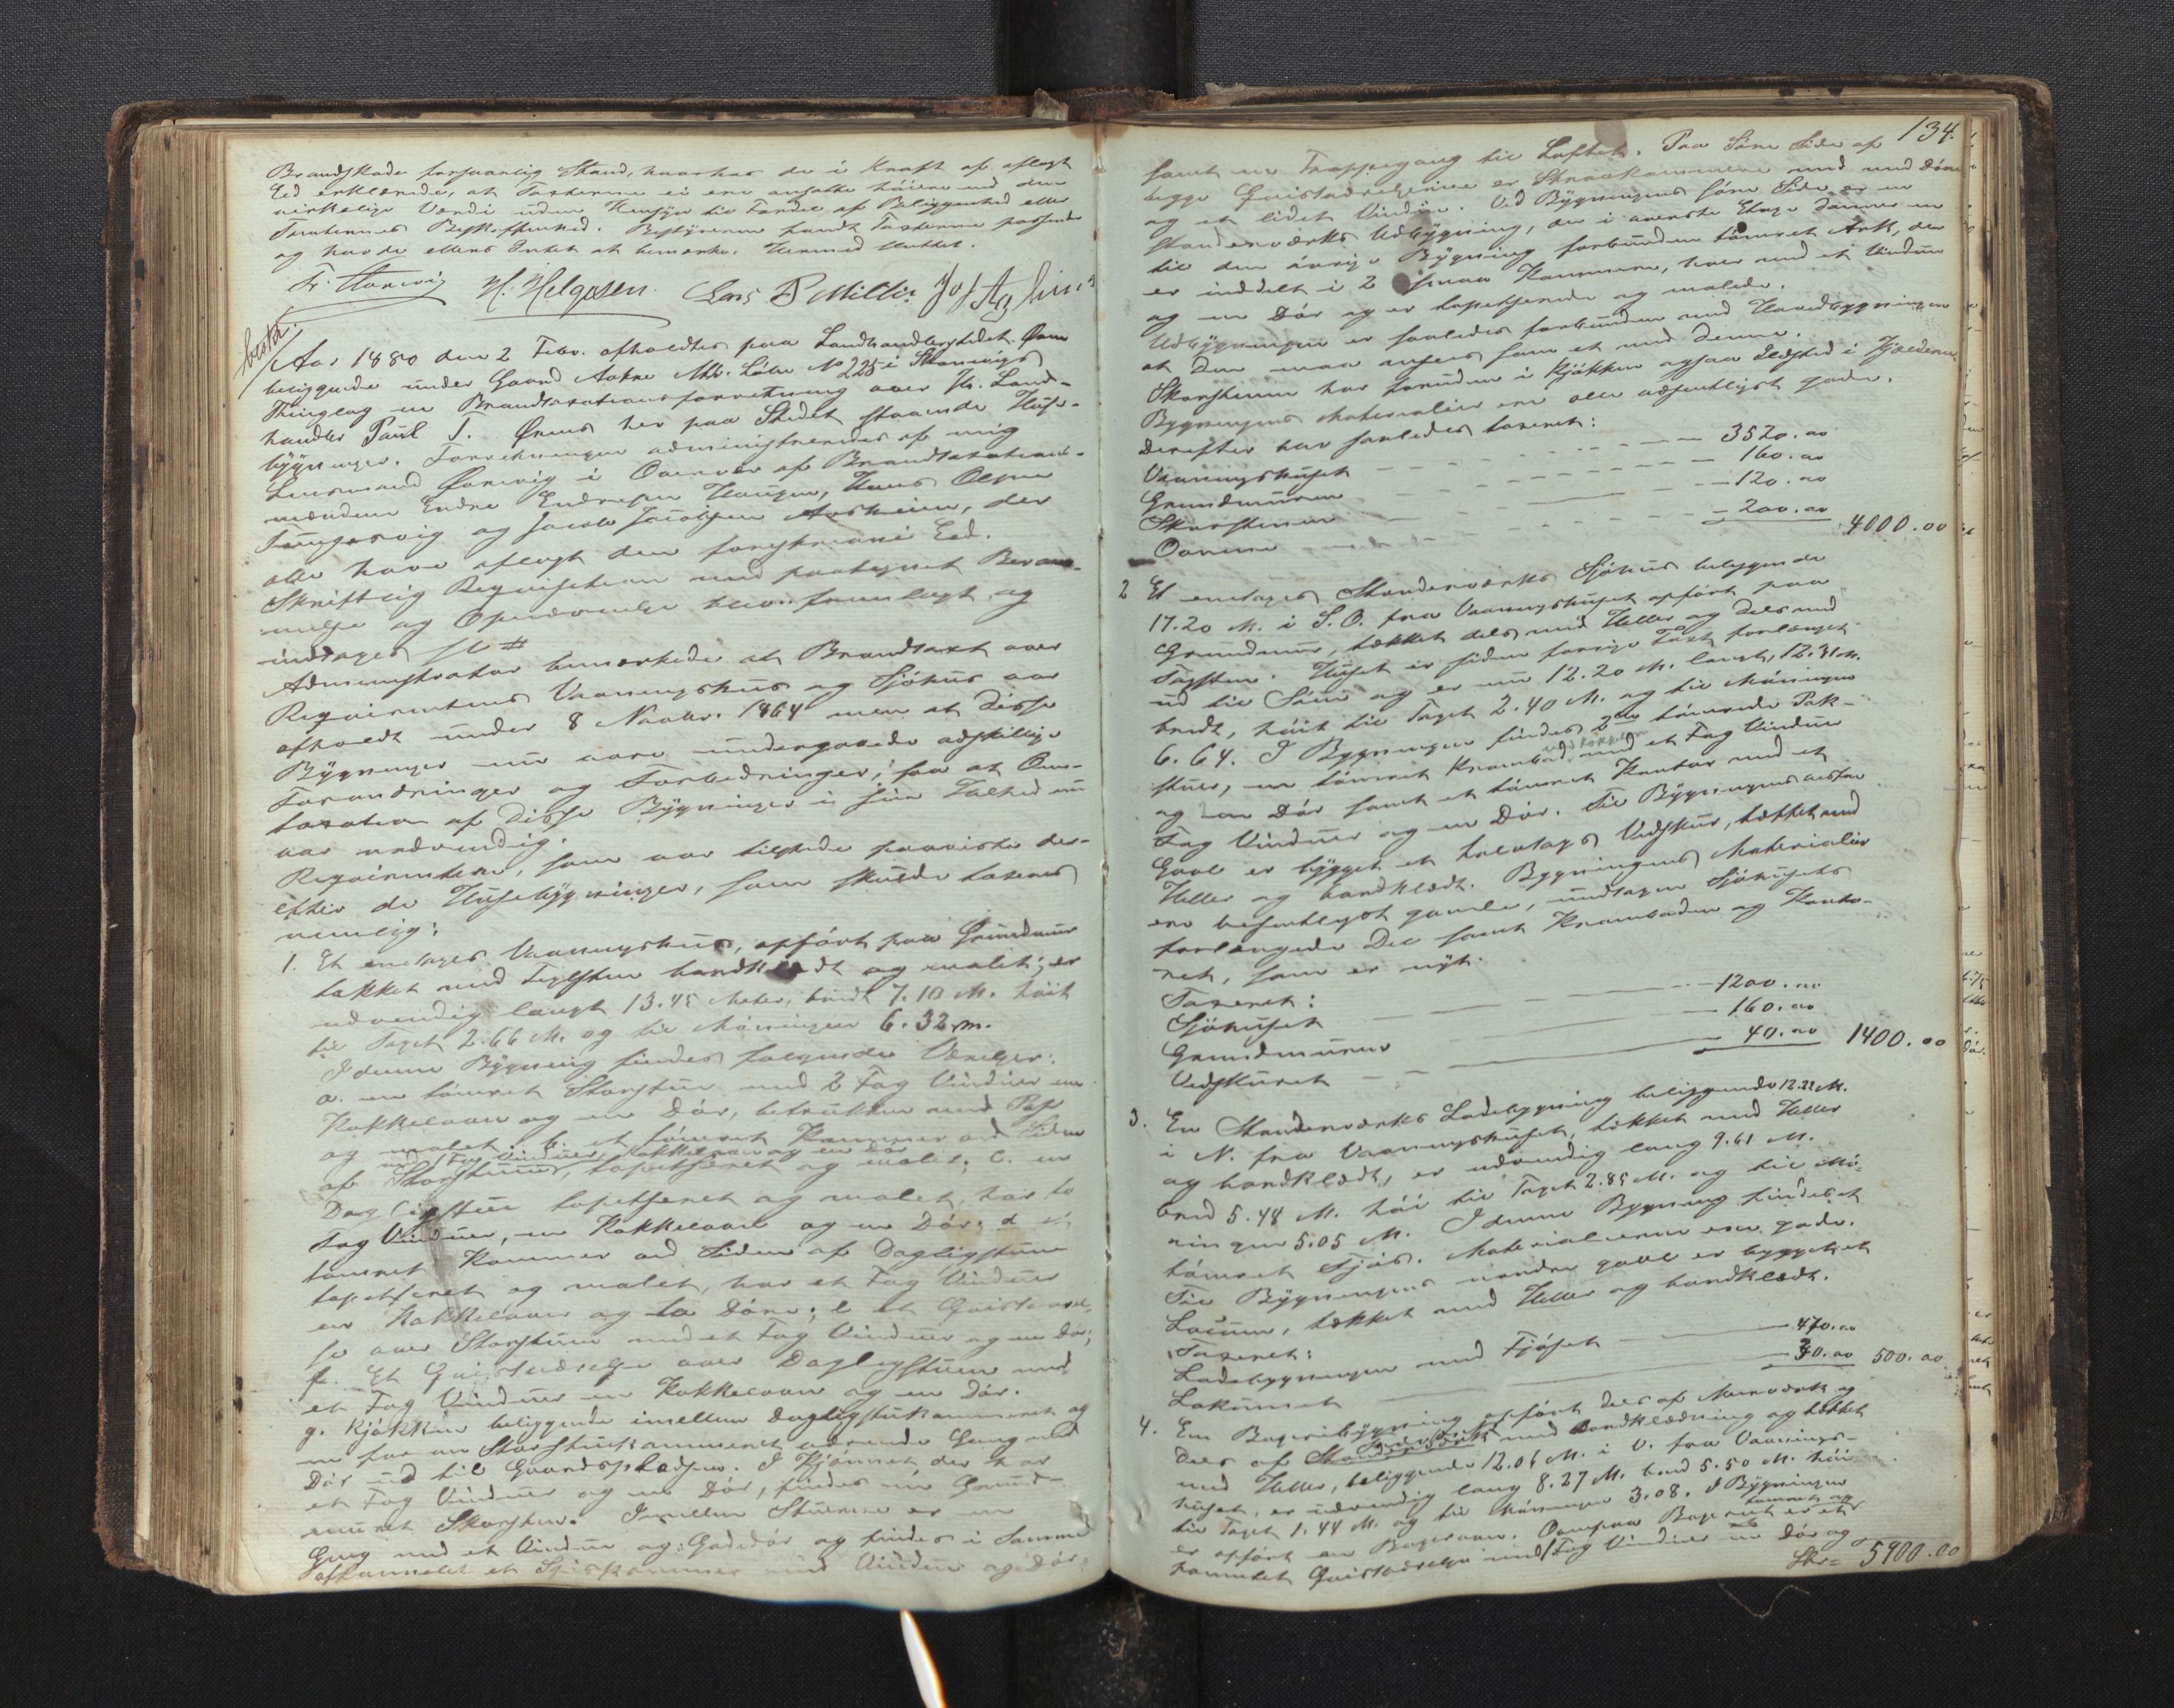 Brandskade forsvarlig Stand, hvorhos de i Kraft af aflagt
Eed erklærede, at Taxterne ei ere ansatte høiere end den
virkelige Værdi uden Hensyn til Fordel af Beliggenhed eller
Tomternes Beskaffenhed. Bestyreren fandt Taxterne passende
og havde ellers Intet at bemærke. Hermed sluttet.
H. Helgesen. Lars
Aar 1880 den 2 Febr. afholdtes paa Landhandlerstedet
beliggende under Gaard Aakre Mtr. Løbe No 225 i Skonevigs
Thinglag en Brandtaxationsforretning over Hr. Land-
handler Paul T. Ørens her paa Stedet staaende Huse-
bygninger. Forretningen administreredes af mig
Lensmand i Overvær af Brandtaxations-
mændene Endre Endresen Haugen, Hans Olsen
Tungesvig og Jacob Jacobsen, der
alle have aflagt den foreskrevne Eed.
Skriftlig Requisition med paategnet Beram-
melse og Opnævnelse blev fremlagt og
indtages sl #
Administrator bemærkede at Brandtaxt over
Requirentens Vaaningshus og Sjöhus var
afholdt under 8 Novbr. 1864 men at disse
Bygninger nu vare undergaaede adskillige
Forandringer og Forbedringer, saa at Om-
taxation af disse Bygninger i sin Helhed nu
var nødvendig.
Requirenten, som var tilstede paaviste der-
efter de Husebygninger, som skulde taxeres
nemlig:
1. Et enetages Vaaningshus, opført paa Grundmur
takket med Teglsten bordklædt og malet; er
udvendig langt 13.45 Meter, bredt 7.10 M. høit
til Taget 2.66 M. og til Møningen 6.32 m.
I denne Bygning findes følgende Værelser:
a. en tømret Storstue med 2 Fag Vinduer en
Kakkelovn og en Dør, betrukken med Pap
og malet; b. et tømret Kammer ved Siden
med 1 Fag Vinduer, Kakkelovn og en Dør
af Storstuen, tapetseret og malet; c. en
Dagligstue tapetseret og malet, har to
Fag Vinduer, en Kakkelovn og en Dør; d et
tømret Kammer ved Siden af Dagligstuen
tapetseret og malet, har et Fag Vinduer
en Kakkelovn og to Døre; e et Qvistværel-
se over Storstuen med et Fag Vinduer og en Dør;
f. Et Qvistværelse over Dagligstuen med
et Fag Vinduer en Kakkelovn og en Dør.
g. Kjøkken beliggende imellem Dagligstukammeret og
en for en Storstukammeret værende Gang med
Dør ud til Gaardspladsen. I Kjøkkenet der har
et Fag Vinduer og en Dør, findes en Grund-
muret Skorsten. Imellem Stuerne er en
Gang med et Vindue og Gadedør og findes i Samme
afpannelet et Spiskammer med Vindue og Dør
134.
samt en Trappegang til Loftet. Paa Søre Side af
begge Qvistværelserne er Skraakammere med en Dør
og et lidet Vindue. Ved Bygningens søre Side er en
Standerværks Udbygning, der i øverste Etage danner en
til den øvrige Bygning forbunden tømret Ark, der
er inddelt i 2 smaa Kammere, hver med et Vindue
og en Dør og er tapetserede og malede.
Udbygningen er saaledes forbunden med Hovedbygningen
at den maa ansees som et med denne.
Skorstenen har foruden i Kjøkken ogsaa Ildsted i Kjelderen.
Bygningens Materialier ere alle væsentligst gode.
Derefter bar saaledes taxeret:
Vaaningshuset - - - 3520.00
Grundmuren - - - 160.00
Skorstenen - - - 120.00
Ovnene - - - 200.00 4000.00
2 Et enetages Standerværks Sjøhus beliggende
17.20 M. i S.O. fra Vaaningshuset opført paa
Grundmur, tækket dels med Heller og dels med
Tagsten. Huset er siden forrige Taxt forlænget
ud til Søen og er nu 12.20 M. langt, 12.31 M.
bredt, høit til Taget 2.40 M. og til Møningen
6.64. I Bygningen findes 2de tømrede Pak-
stuer, en tømret Krambod med et Fag Vinduer
og en Dør samt et tømret Kontor med et
Fag Vinduer og en Dør. Til Bygningens vestre
Gavl er bygget et Vedskur, tækket med
Heller og bordklædt. Bygningens Materialier
ere væsentligst gamle, undtagen Sjøhusets
forlængede Del samt Kramboden og Konto-
ret, som er nyt.
Taxeret:
Sjøhuset - - - 1200.00
Grundmuren - - - 160.00
Vedskuret - - - 40.00 1400.00
3. En Standerværks Ladebygning beliggende 12.22 M.
i N. fra Vaaningshuset, tækket med Heller
og bordklædt, er udvendig lang 9.61 M.
bred 5.48 M. høi til Taget 2.85 M. og til Mø-
ningen 5.05 M. I denne Bygning findes et
tømret Fjøs. Materialierne ere gode.
Til Bygningens nordre Gavl er bygget et
Locum, tækket med Heller og bordklædt.
Taxeret:
Ladebygningen med Fjøset - 470.00
Lokummet - 30.00 500.00
4. Em Bageribygning opført dels af Murværk og
dels af Standerværk med Bordklædning og tækket
med Heller, beliggende 12.06 M. i V. fra Vaanings-
huset, er udvendig lang 8.27 M. bred 5.50 M. høi
til Taget 1.44 M. og til Møningen 3.08. I Bygningen
er opført en Bagerovn. Ovenpaa Bageriet er et
tømret Qvistværelse med 1 Fag Vinduer en Dør og
5900.00